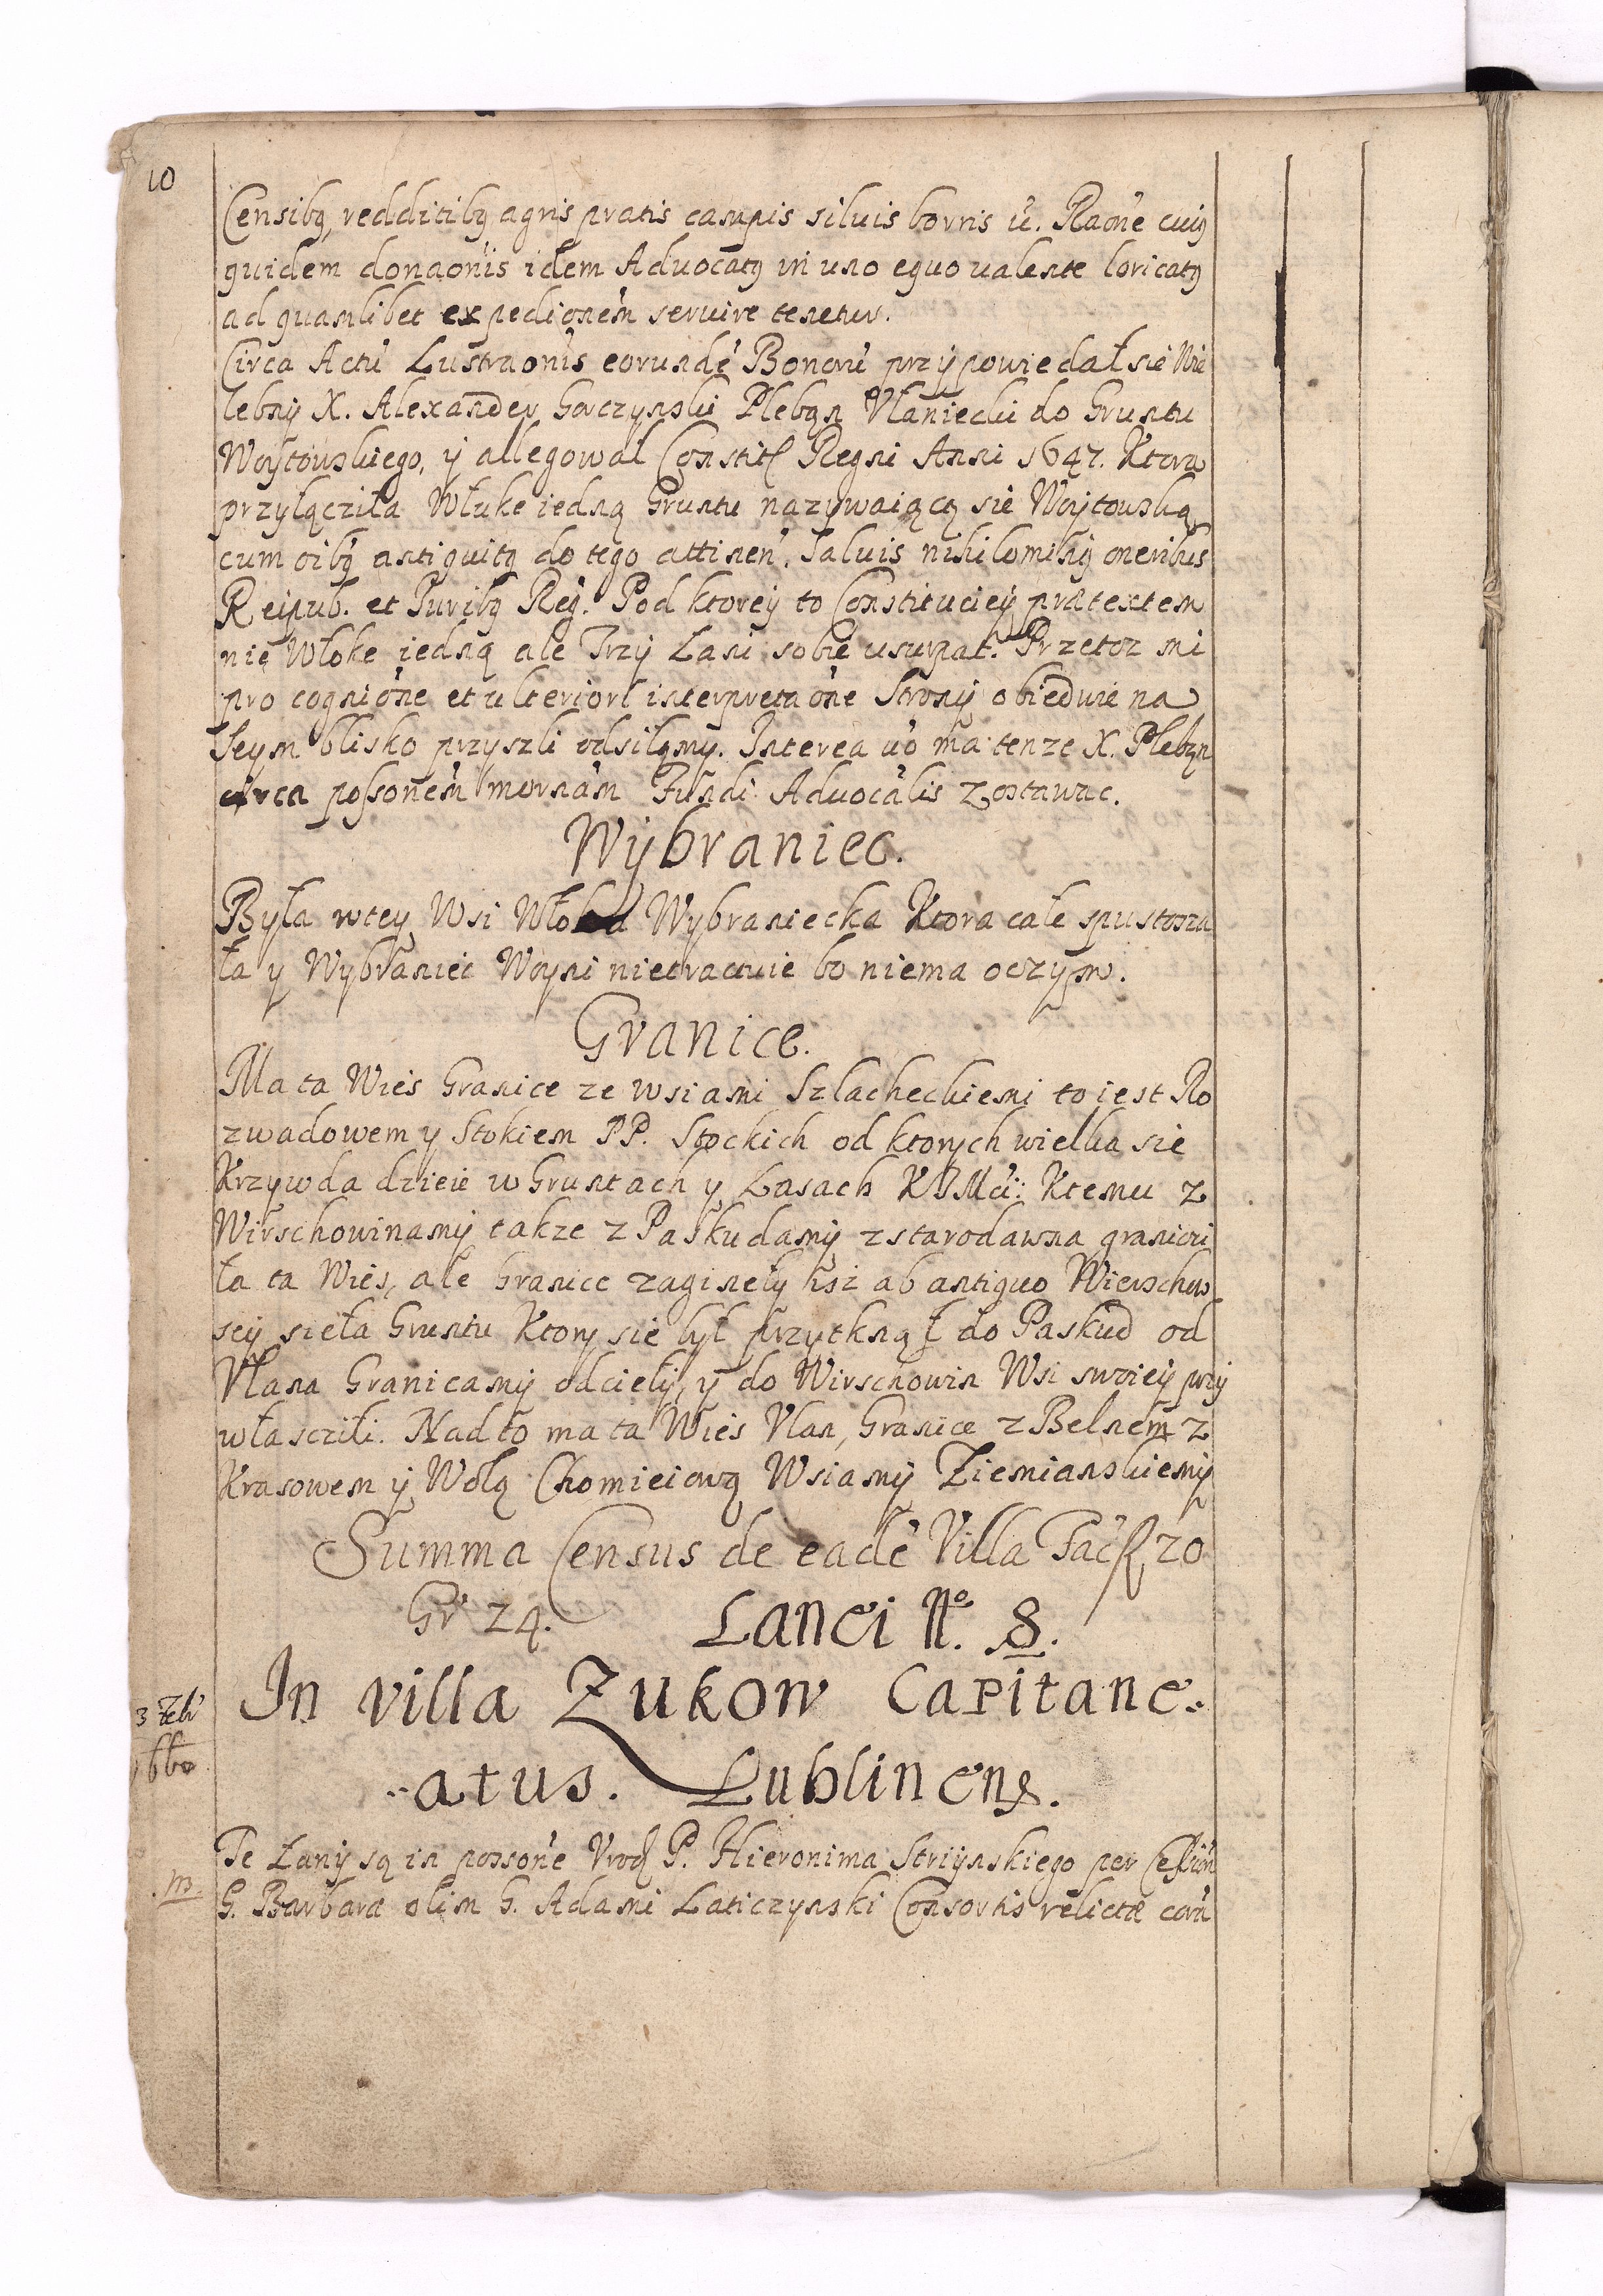 10
Censibq, redditibq agris pratis campis siluis borris ẽt. Raõne cuiq
quidem donaonis idem Aduocatq in uno equo ualente loricatq
ad quamlibet expedionem seruire tenetur.
Circa Actũ Lustraonis eorundẽ Bonorũ przypowiedał sie Wie
lebny X. Alexander Gorczynski Plebąn Vłaniecki do Gruntu
Woytowskiego, y allegowal Constit Regni Anni 1647. Ktora
przyłącziła Włuke iedną Gruntu nazywaiącą sie Woytowską
cum oibq antiquitq do tego attinen. Saluis nihilominq oneribus
Reipub. et Iuribq Reg. Pod ktorey to Constituciey prætextem
nie Włoke iedną ale Trzy Lani sobie usurpat. Przetoz mi
pro cognitione et ulteriori interpretaone Strony obiedwie na
Seym blisko przyszli odsiłąmy. Interea uo ma tenze X. Plebąn
circa possonem modernam Fundi Aduocalis Zostawac.
Wybraniec.
Była wtey Wsi Włoka Wybraniecka Ktora cale spustosza
ła y Wybraniec Woyni nietractuie bo niema oczym.
Granice.
Ma ta Wies Granice ze wsiami Szlacheckiemi to iest Ro
zwadowem y Stokiem PP. Stockich od ktorych wielka sie
Krzywda dzieie w Gruntach y Lasach KJMci: Ktemu z
Wirschowinamy takze z Paskudamy zstarodawna graniczi
ła ta Wies, ale Granice zagineły Jsz ab antiquo Wierschow
scy sieła Gruntu Ktory sie był przytknął do Paskud od
Vłana Granicamy odcieły, y do Wirschowin Wsi swoiey przy
własczili. Nadto ma ta Wies Vlan, Granice z Belnem z
Krasowem y Wolą Chomieiową Wsiamy Ziemianskiemy
Summa Census de eadẽ Villa Fac fl 20
Gr 24. Lanei No. 8.
In villa Zukow Capitane-
3 Feb
1660
-atus. Lublinens.
Te Lany są in possone Vrod P. Hieronima Striynskiego per Cession
m
G. Barbaræ olim G. Adami Laticzynski Consortis relictæ corũ